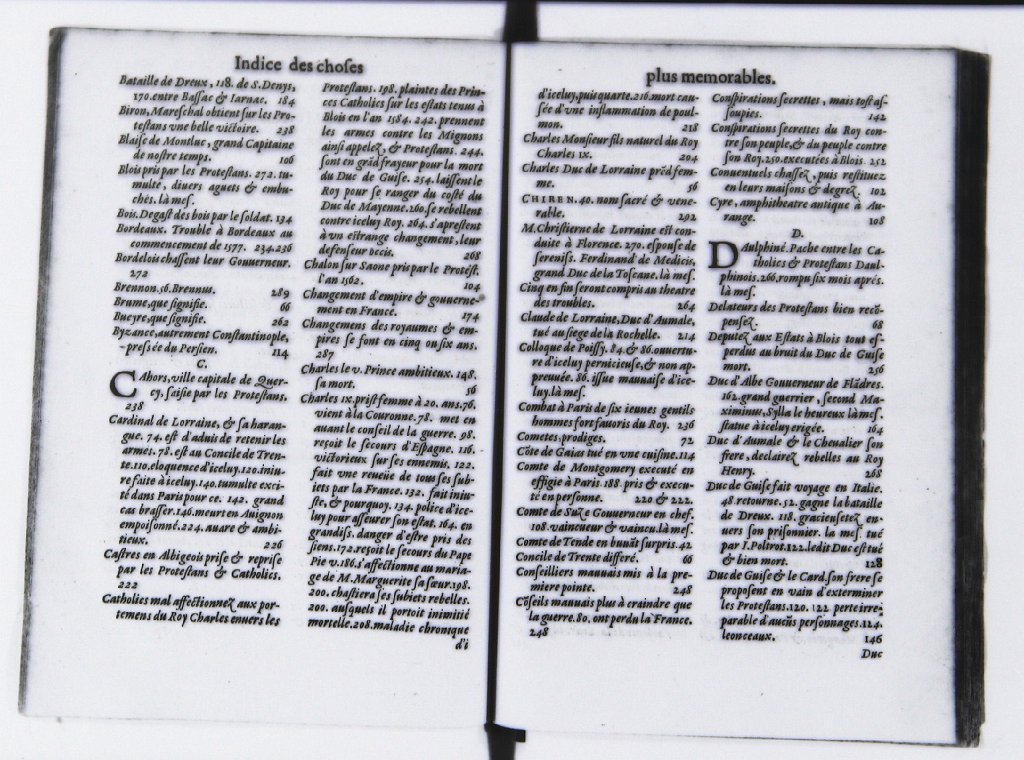 Indice des choſes
Bataille de Dreux, 118. de S. Denys,
170. entre Baſſac & Iarnac. 184
Biron, Mareſchal obtient ſur les Pro-
teſtans vne belle victoire. 238
Blaiſe de Montluc, grand Capitaine
de noſtre temps. 106
Blois pris par les Proteſtans. 272. tu-
multe, diuers aguets & embu-
ches. là meſ.
Bois. Degaſt des bois par le ſoldat. 134
Bordeaux. Trouble à Bordeaux au
commencement de 1577. 234.236
Bordelois chaſſent leur Gouuerneur.
272
Brennon. 56. Brennus. 289
Brume, que ſignifie. 66
Bueyre, que ſignifie. 262
Byzance, autrement Conſtantinople,
preſſée du Perſien. 114
C.
CAhors, ville capitale de Quer-
cy, ſaiſie par les Proteſtans.
238
Cardinal de Lorraine, & ſa haran-
gue. 74. eſt d'aduis de retenir les
armes. 78. eſt au Concile de Tren-
te. 110. eloquence d'iceluy. 120. iniu-
re faite à iceluy. 140. tumulte exci-
té dans Paris pour ce. 142. grand
cas braſſer. 146. meurt en Auignon
empoiſonné. 224. auare & ambi-
tieux. 226
Caſtres en Albigeois priſe & repriſe
par les Proteſtans & Catholics.
222
Catholics mal affectionnez aux por-
temens du Roy Charles enuers les
Proteſtans. 198. plaintes des Prin-
ces Catholics ſur les eſtats tenus à
Blois en l'an 1584. 242. prennent
les armes contre les Mignons
ainſi appelez, & Proteſtans. 244.
ſont en grãd frayeur pour la mort
du Duc de Guiſe. 254. laiſſent le
Roy pour ſe ranger du coſté du
Duc de Mayenne. 260. ſe rebellent
contre iceluy Roy. 264. s'apreſtent
à vn eſtrange changement, leur
defenſeur occis. 268
Chalon ſur Saone pris par le Proteſt.
l'an 1562. 104
Changement d'empire & gouuerne-
ment en France. 174
Changemens des royaumes & em-
pires ſe font en cinq ou ſix ans.
287
Charles le v. Prince ambitieux. 148.
ſa mort. 56
Charles ix. priſt femme à 20. ans. 76.
vient à la Couronne. 78. met en
auant le conſeil de la guerre. 98.
reçoit le ſecours d'Eſpagne. 116.
victorieux ſur ſes ennemis. 122.
fait vne reueüe de tous ſes ſub-
iets par la France. 132. fait iniu-
ſte, & pourquoy. 134. police d'ice-
luy pour aſſeurer ſon eſtat. 164. en
grandiſs. danger d'eſtre pris des
ſiens. 172. reçoit le ſecours du Pape
Pie v. 186. s'affectionne au maria-
ge de M. Marguerite ſa ſœur. 198.
200. chaſtiera ſes ſubiets rebelles.
200. auſquels il portoit inimitié
mortelle. 208. maladie chronique
d'i
plus memorables.
d'iceluy, puis quarte. 216. mort cau-
ſée d'vne inflammation de poul-
mon. 218
Charles Monſieur fils naturel du Roy
Charles ix. 204
Charles Duc de Lorraine prẽd fem-
me. 56
CHIREN. 40. nom ſacré & vene-
rable. 292
M. Chriſtierne de Lorraine eſt con-
duite à Florence. 270. eſpouſe de
ſereniſs. Ferdinand de Medicis,
grand Duc de la Toſcane. là meſ.
Cinq en fin ſeront compris au theatre
des troubles. 264
Claude de Lorraine, Duc d'Aumale,
tué au ſiege de la Rochelle. 214
Colloque de Poiſſy. 84. & 86. ouuertu-
re d'iceluy pernicieuſe, & non ap-
preuuée. 86. iſſue mauuaiſe d'ice-
luy. là meſ.
Combat à Paris de ſix ieunes gentils
hommes fort fauoris du Roy. 236
Cometes, prodiges. 72
Cõte de Gaias tué en vne cuiſine. 114
Comte de Montgomery executé en
effigie à Paris 188. pris & execu-
té en perſonne. 220 & 222.
Comte de Suze Gouuerneur en chef.
108. vaincueur & vaincu. là meſ.
Comte de Tende en buuãt ſurpris. 42
Concile de Trente differé. 60
Conſeilliers mauuais mis à la pre-
miere pointe. 248
Cõſeils mauuais plus à craindre que
la guerre. 80. ont perdu la France.
248
Conſpirations ſecrettes, mais toſt aſ-
ſoupies. 142
Conſpirations ſecrettes du Roy con-
tre ſon peuple, & du peuple contre
ſon Roy. 250. executées à Blois. 252
Conuentuels chaſſez, puis reſtituez
en leurs maiſons & degrez. 102
Cyre, amphitheatre antique à Au-
range. 108
D.
DAulphiné. Pache entre les Ca-
tholics & Proteſtans Daul-
phinois. 266. rompu ſix mois apres.
là meſ.
Delateurs des Proteſtans bien recõ-
penſez. 68
Deputez aux Eſtats à Blois tout eſ-
perdus au bruit du Duc de Guiſe
mort. 256
Duc d'Albe Gouuerneur de Flãdres.
162. grand guerrier, ſecond Ma-
ximinus, Sylla le heureux là meſ.
ſtatue à iceluy erigée. 164
Duc d'Aumale & le Cheualier ſon
frere, declairez rebelles au Roy
Henry. 268
Duc de Guiſe fait voyage en Italie.
48. retourne. 52. gagne la bataille
de Dreux. 118. gracieuſetez en-
uers ſon priſonnier. la meſ. tué
par I. Poltrot. 122. ledit Duc eſt tué
& bien mort. 128
Duc de Guiſe & le Card. ſon frere ſe
propoſent en vain d'exterminer
les Proteſtans. 120. 122. perte irre-
parable d'aucũs perſonnages. 124.
leonceaux. 146
Duc